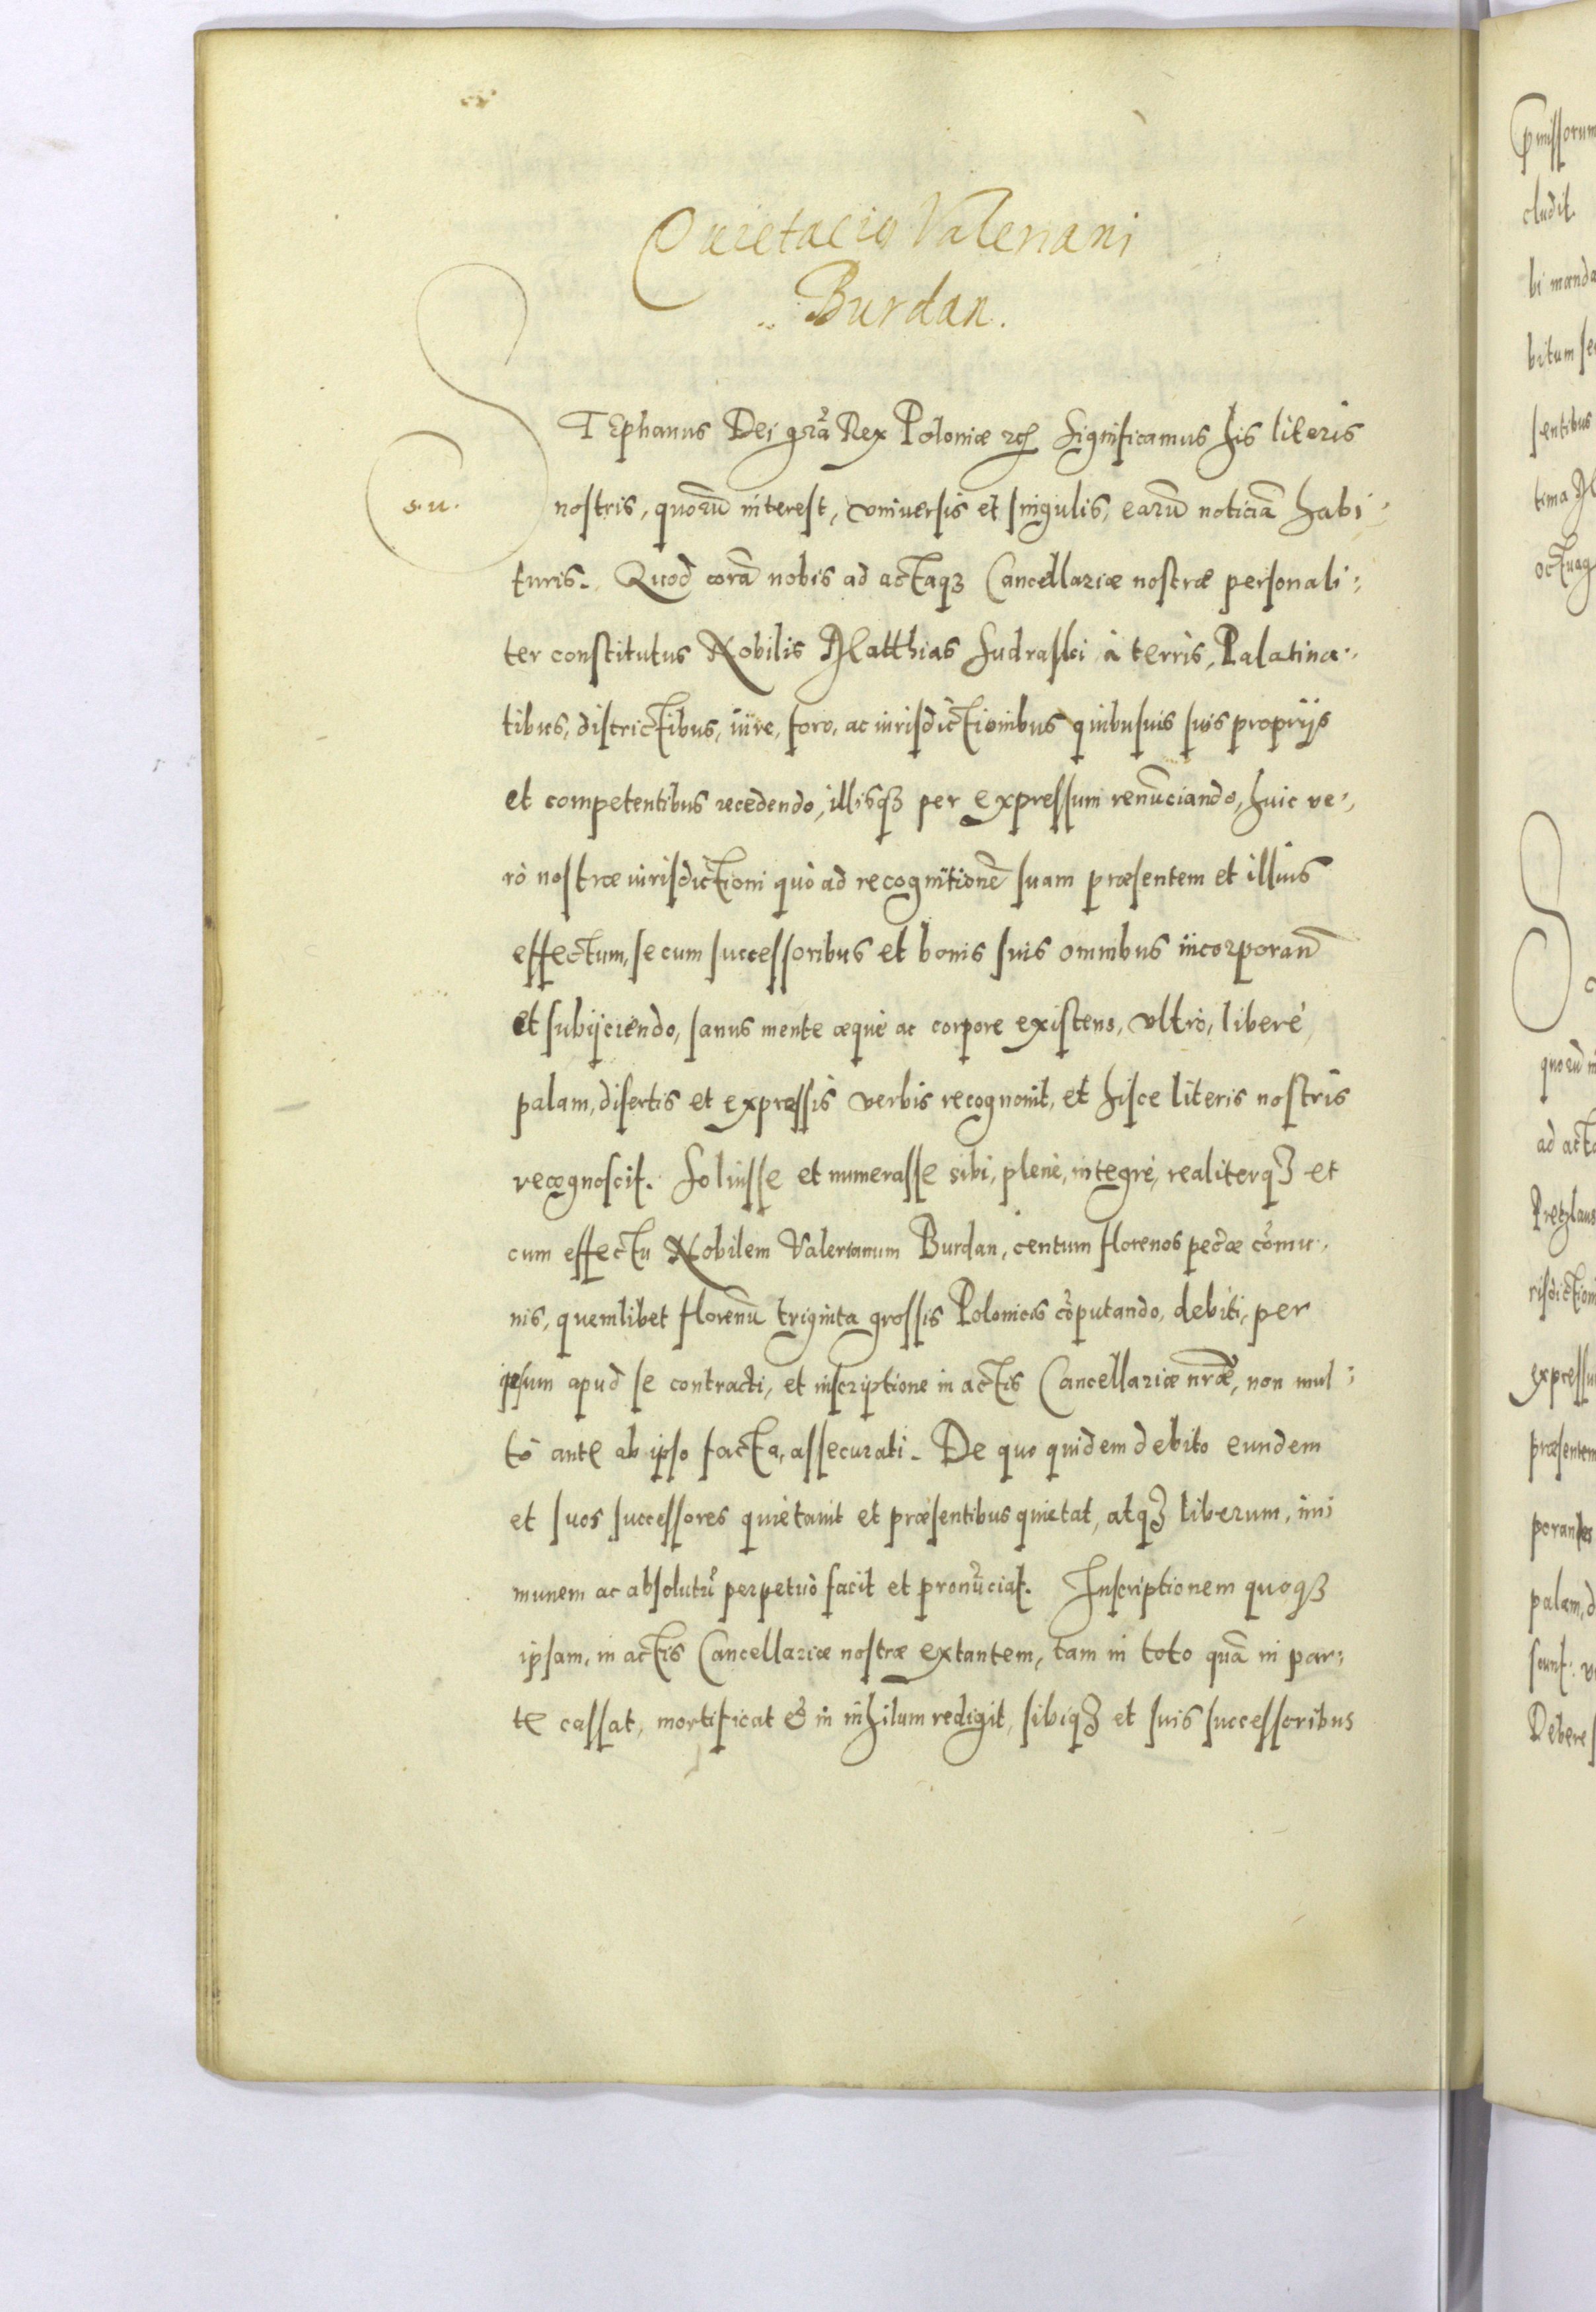 Quietacio Valeriani
Burdan.
STEphanus Dei gr̃a Rex Poloniæ ꝛcꝭ Significamus his literis
s.u.
nostris, quorũ interest, vniuersis et singulis, earũ noticiã habi:
turis. Quod corã nobis ad actaqꝫ Cancellariæ nostræ personali:
ter constitutus Nobilis Matthias Sudraski à terris, Palatina:
tibus, districtibus, iure, foro, ac iurisdictionibus quibusuis suis proprijs
et competentibus recedendo, illisqꝫ per expressum renũciando, huic ve:
rò nostræ iurisdictioni quò ad recognitionẽ suam præsentem et illius
effectum, se cum successoribus et bonis suis omnibus incorporañ
et subijciendo, sanus mente æquè ac corpore existens, vltrò, liberè,
palam, disertis et expressis verbis recognouit, et hisce literis nostris
recognoscit. Soluisse et numerasse sibi, plenè, integrè, realiterqꝫ et
cum effectu Nobilem Valerianum Burdan, centum florenos pec̃æ cõmu:
nis, quemlibet florenũ triginta grossis Polonicis cõputando, debiti, per
ipsum apud se contracti, et inscriptione in actis Cancellariæ nr̃æ, non mul:
tò ante ab ipso facta, assecurati. De quo quidem debito eundem
et suos successores quietauit et præsentibus quietat, atqꝫ liberum, im
munem ac absolutũ perpetuò facit et pronũciat. Inscriptionem quoqꝫ
ipsam, in actis Cancellariæ nostræ extantem, tam in toto quã in par:
te cassat, mortificat & in nihilum redigit, sibiqꝫ et suis successoribus